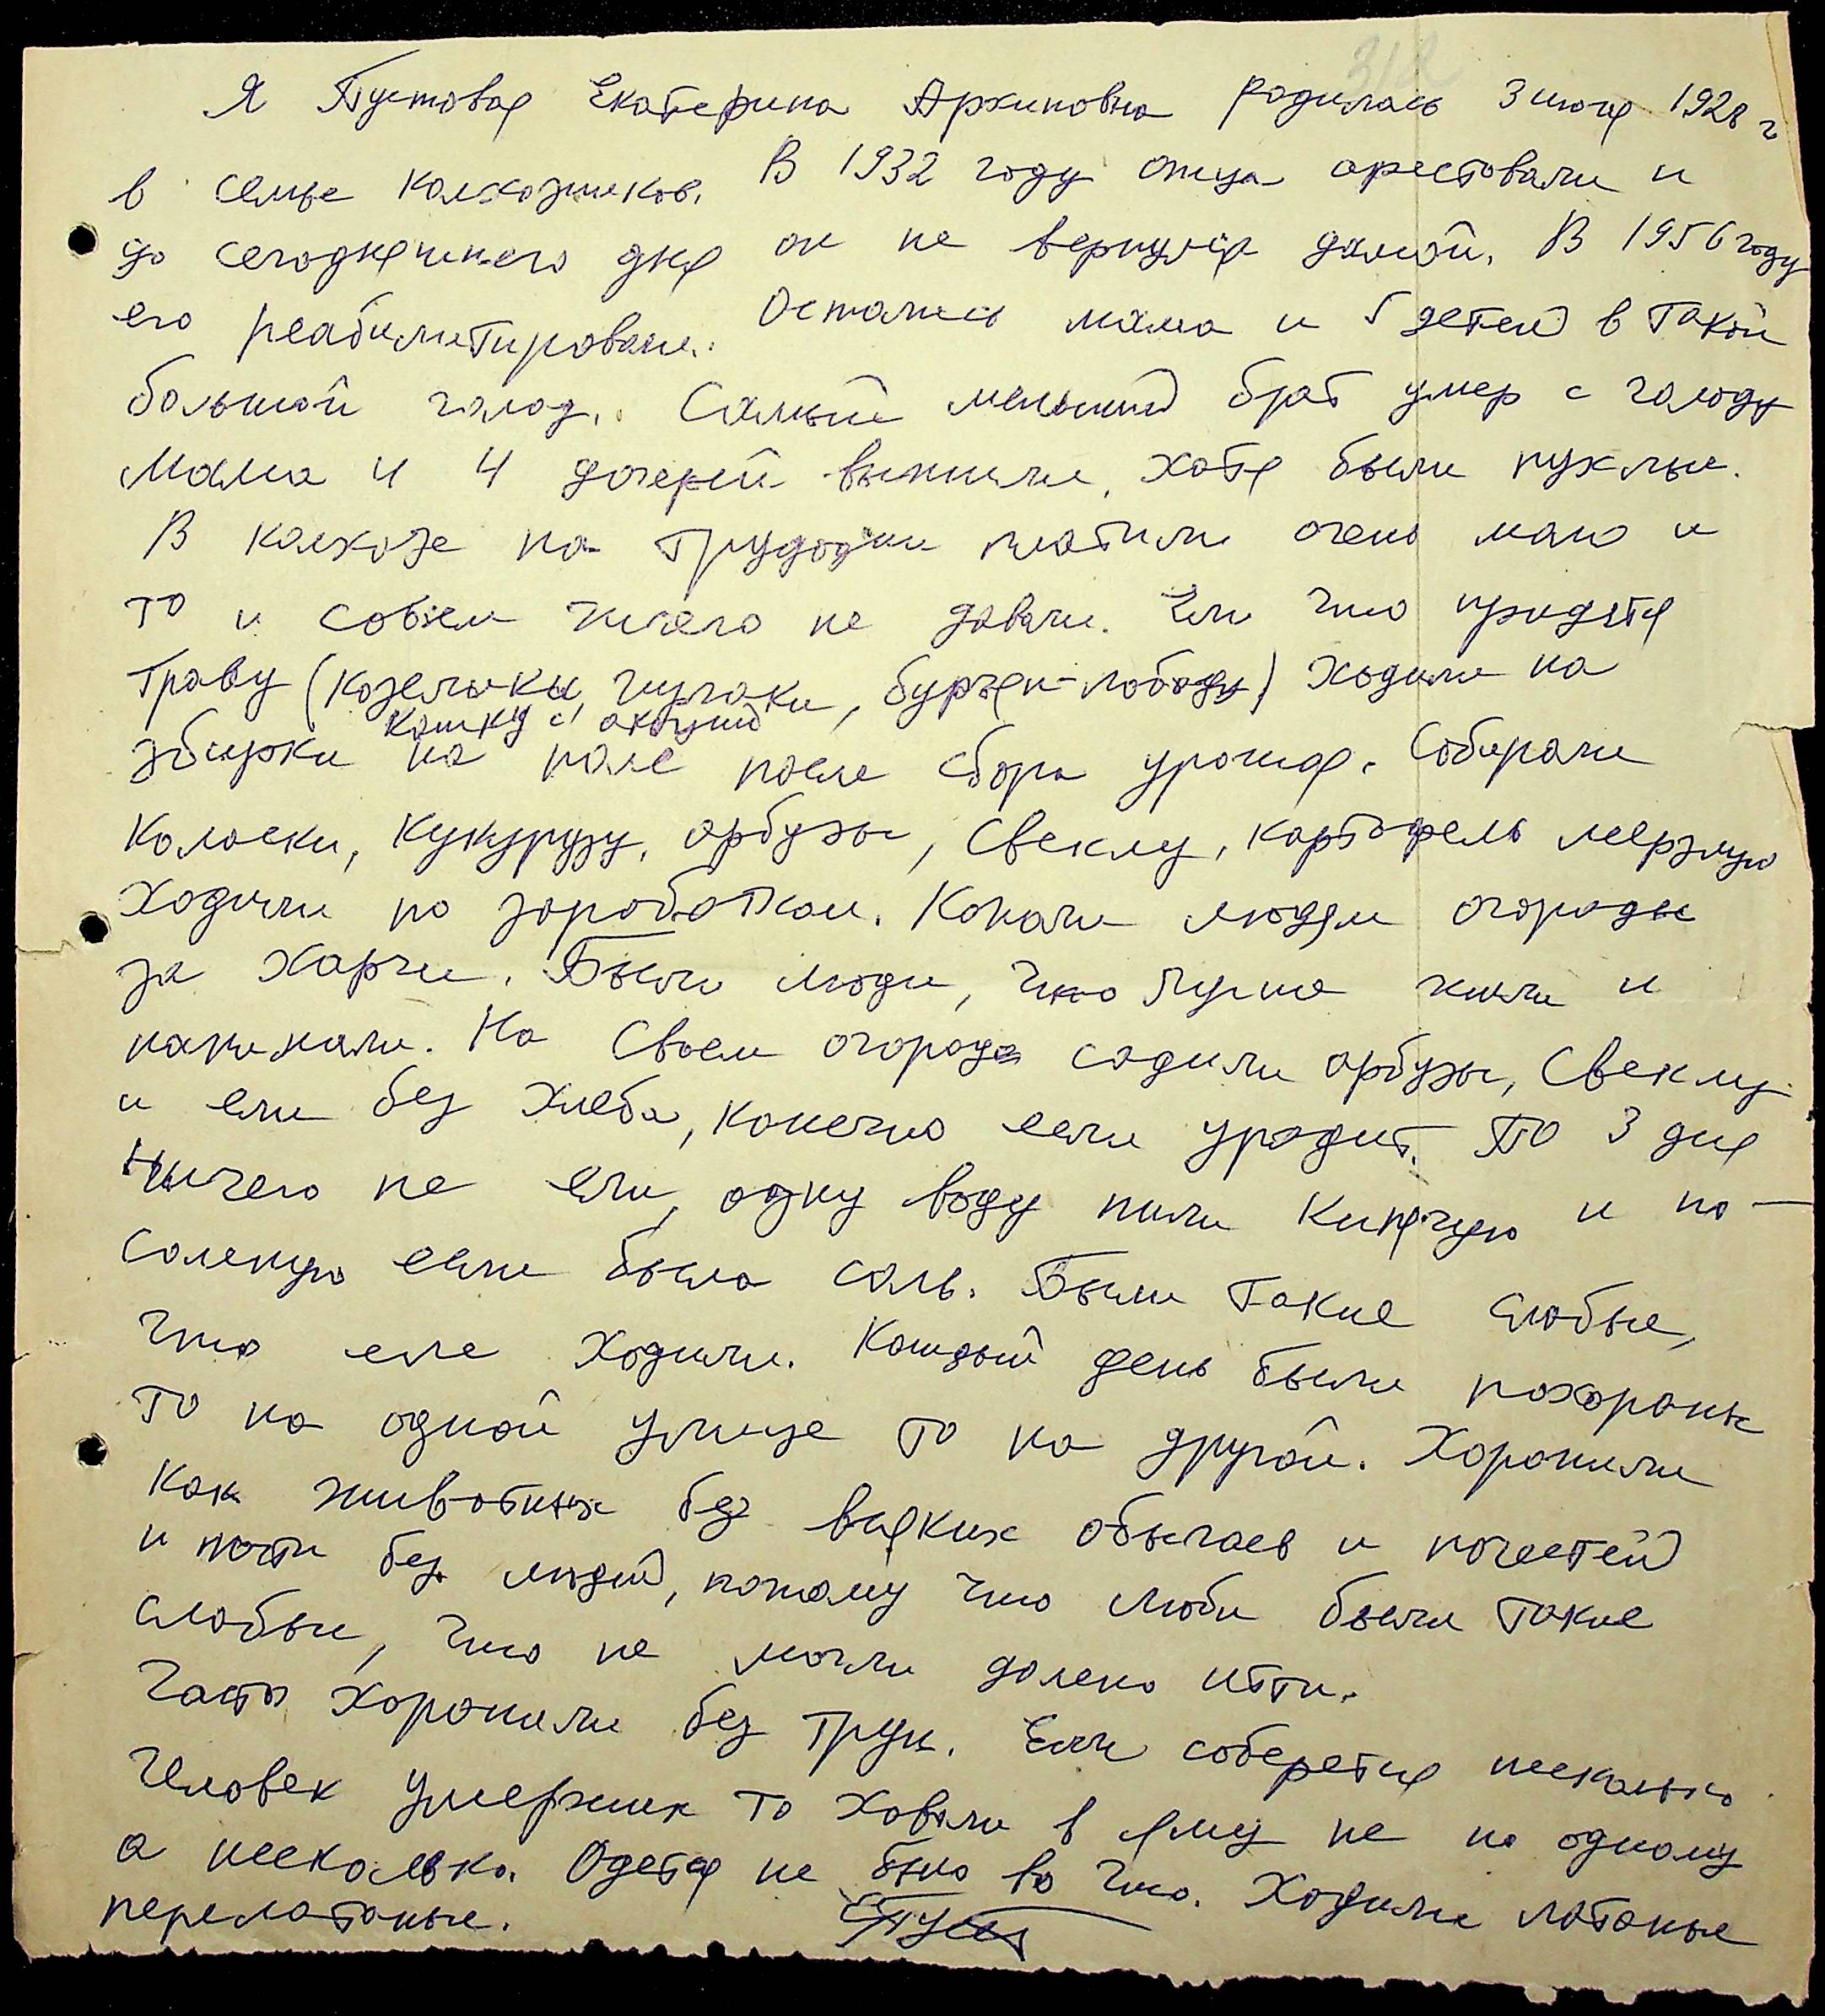 312
Я Пустовая Екатерина Архиповна родилась 3 июля 1928 г
в семье колхозников. В 1932 году отца арестовали и
до сегодняшнего дня он не вернулся домой. В 1956 году
его реабилитировали. Остались мама и 5 детей в такой
большой голод. Самый меньший брат умер с голоду
Мама и 4 дочерей выжили, хотя были пухлые.
В колхозе на трудодни платили очень мало и
то и совсем ничего не давали. Ели что придётся
траву (козелыки, гицаки, бурьян-лободу) Ходили на
кашку с акации
збирки на поле после сбора урожая. Собирали
колоски, кукурузу, арбузы, свеклу, картофель мерзлую
Ходили по заработкам. Копали людям огороды
за харчи. Были люди, что лучше жили и
нанимали. На своем огороде садили арбузы, свеклу
и ели без хлеба, конечно если уродит. По 3 дня
ничего не ели, одну воду пили кипячую и по-
соленую если была соль. Были такие слабые,
что еле ходили. Каждый день были похороны
то на одной улице то на другой. Хоронили
как животных без всяких обычаев и почестей
и почти без людей, потому что люби были такие
слабые, что не могли далеко итти.
Часто хоронили без трун. Если соберется несколько
человек умерших то ховали в яму не по одному
а несколько. Одется не было во что. Ходили латаные
перелатаные.